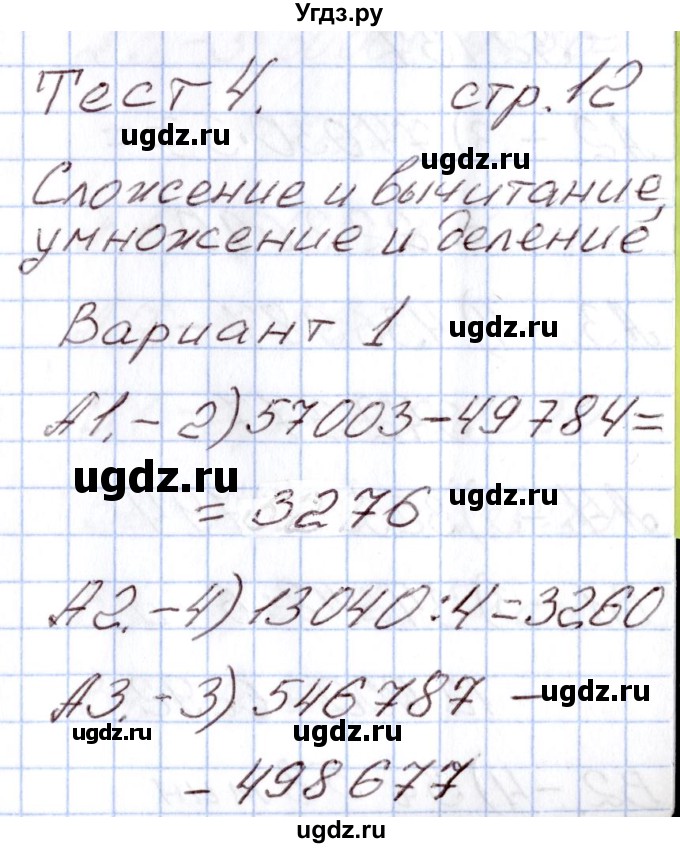 Угдз.ру
Тест 4. стр. 12
ugdz.ru ugdz.ru
Сложение и вычитание,
умножение и деление
Вариант 1 ugdz.ru
А1. - 2) 57003 - 49784 =
ugdz.ru ugdz.ru
= 3276
А2. - 4) 13040 : 4 = 3260
А3. - 3) 546787 -
ugdz.ru ugdz.ru ugdz.ru
- 498677
ugdz.ru